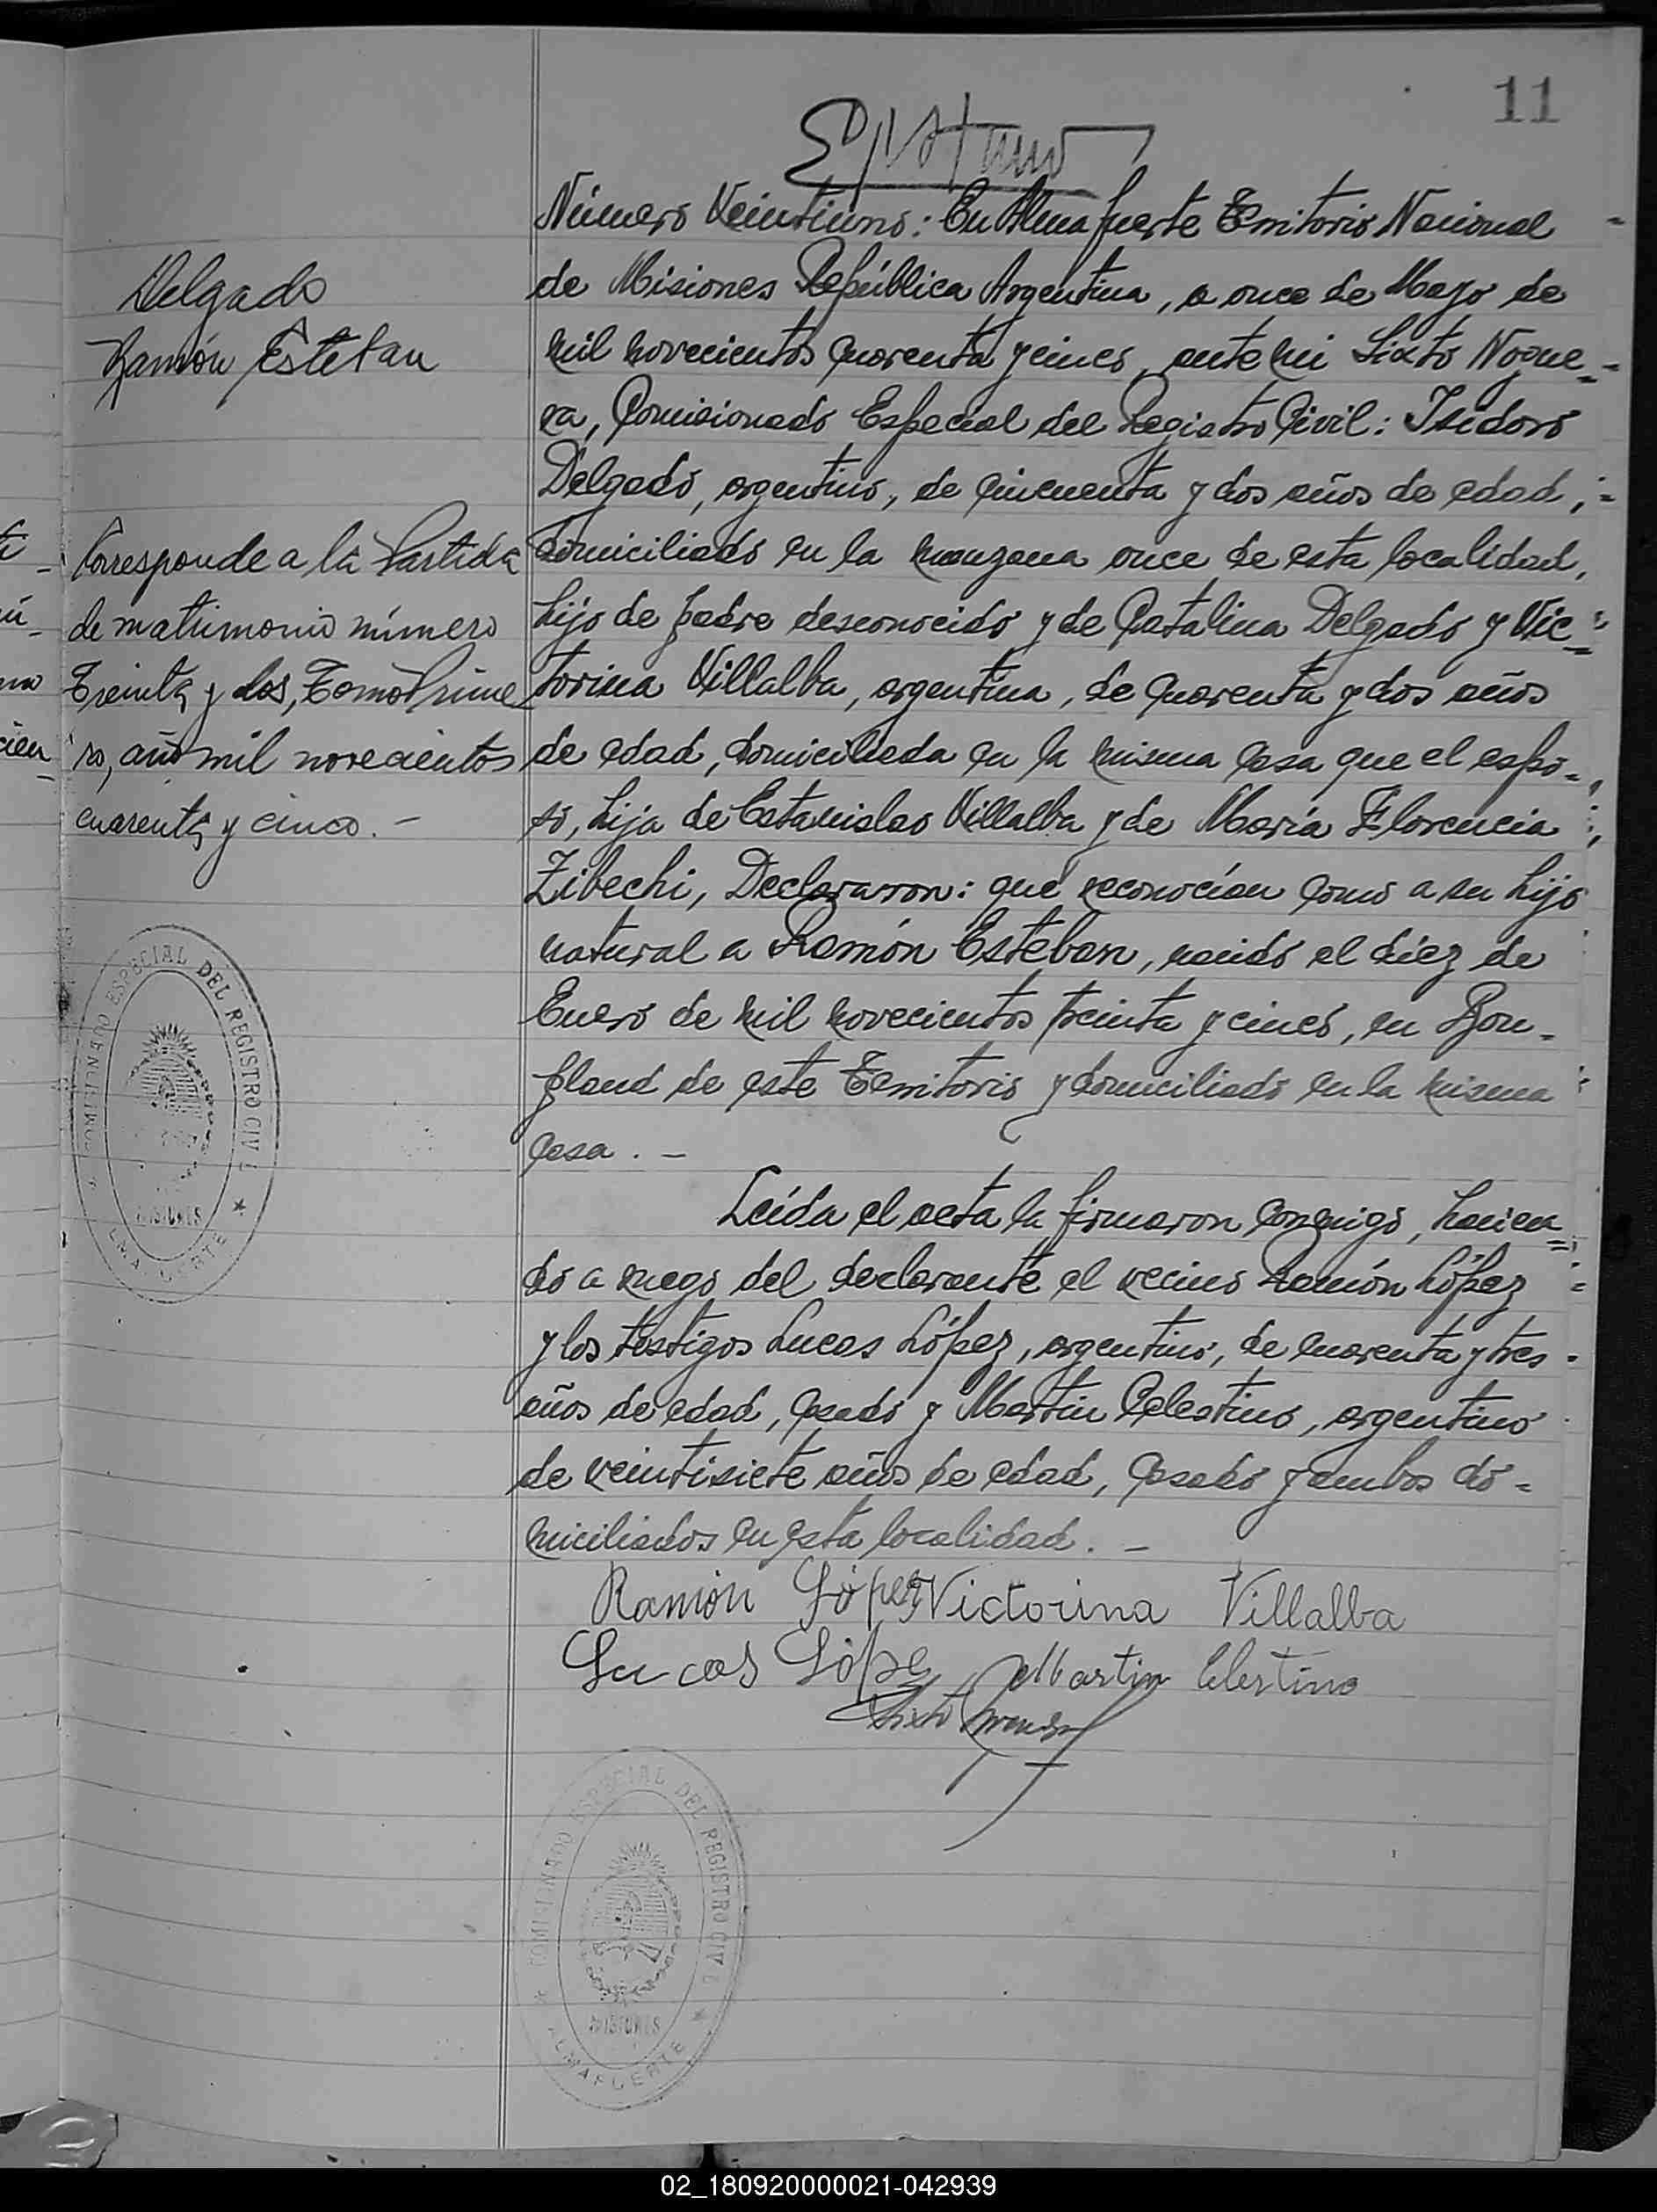 11
Número Veintiuno: En Almafuerte Territorio Nacional
de Misiones República Argentina, a once de Mayo de
mil novecientos cuarenta y cinco, ante mi Sixto Nogue=
ra, Comisionado Especial del Registro Civil: Isidoro
Delgado, argentino, de cincuenta y dos años de edad,
domiciliado en la manzana once de esta localidad,
hijo de padre desconocido y de Catalina Delgado y Vic=
torina Villalba, argentina, de cuarenta y dos años
de edad, domiciliada en la misma casa que el espo=
so, hija de Estanislao Villalba y de María Florencia
Zibechi, Declararon: que reconocían como a su hijo
natural a Ramón Esteban, nacido el diez de
Enero de mil novecientos treinta y cinco, en Bon-
pland de este Territorio y domiciliado en la misma
casa. —
Leída el acta la firmaron conmigo, hacien=
do a ruego del declarante el vecino Ramón López
y los testigos Lucas López, argentino, de cuarenta y tres
años de edad, casado y Martin Celestino, argentino
de veintisiete años de edad, casado y ambos do=
miciliados en esta localidad. —
Ramón López Victorina Villalba
Lucas López Martin Celestino
Sixto
Delgado
Ramón Esteban
Corresponde a la Partida
de matrimonio número
Treinta y dos, Tomo Prime
ro, año mil novecientos
cuarenta y cinco. —
COMISIONADO ESPECIAL DEL REGISTRO CIVIL
MISIONES
ALMAFUERTE
COMISIONADO ESPECIAL DEL REGISTRO CIVIL
MISIONES
ALMAFUERTE
02_180920000021-042939